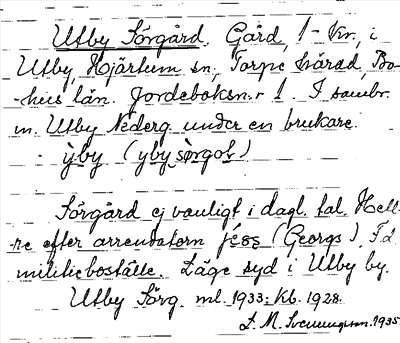 Utby Sörgård. Gård, 1 kr, i
Utby, Hjärtum sn, Torpe härad, Bo-
-hus län. Jordeboksn:r 1. I sambr.
m. Utby Nederg. under en brukare.
ỳby (yby sòrgoḷ)
Sörgård ej vanligt i dagl. tal. Hell-
-re efter arrendatorn (Georgs). F.d.
militieboställe. Läge syd i Utby by.
Utby Sörg. ml. 1933; Kb. 1928.
L. M. Svenungsson. 1935